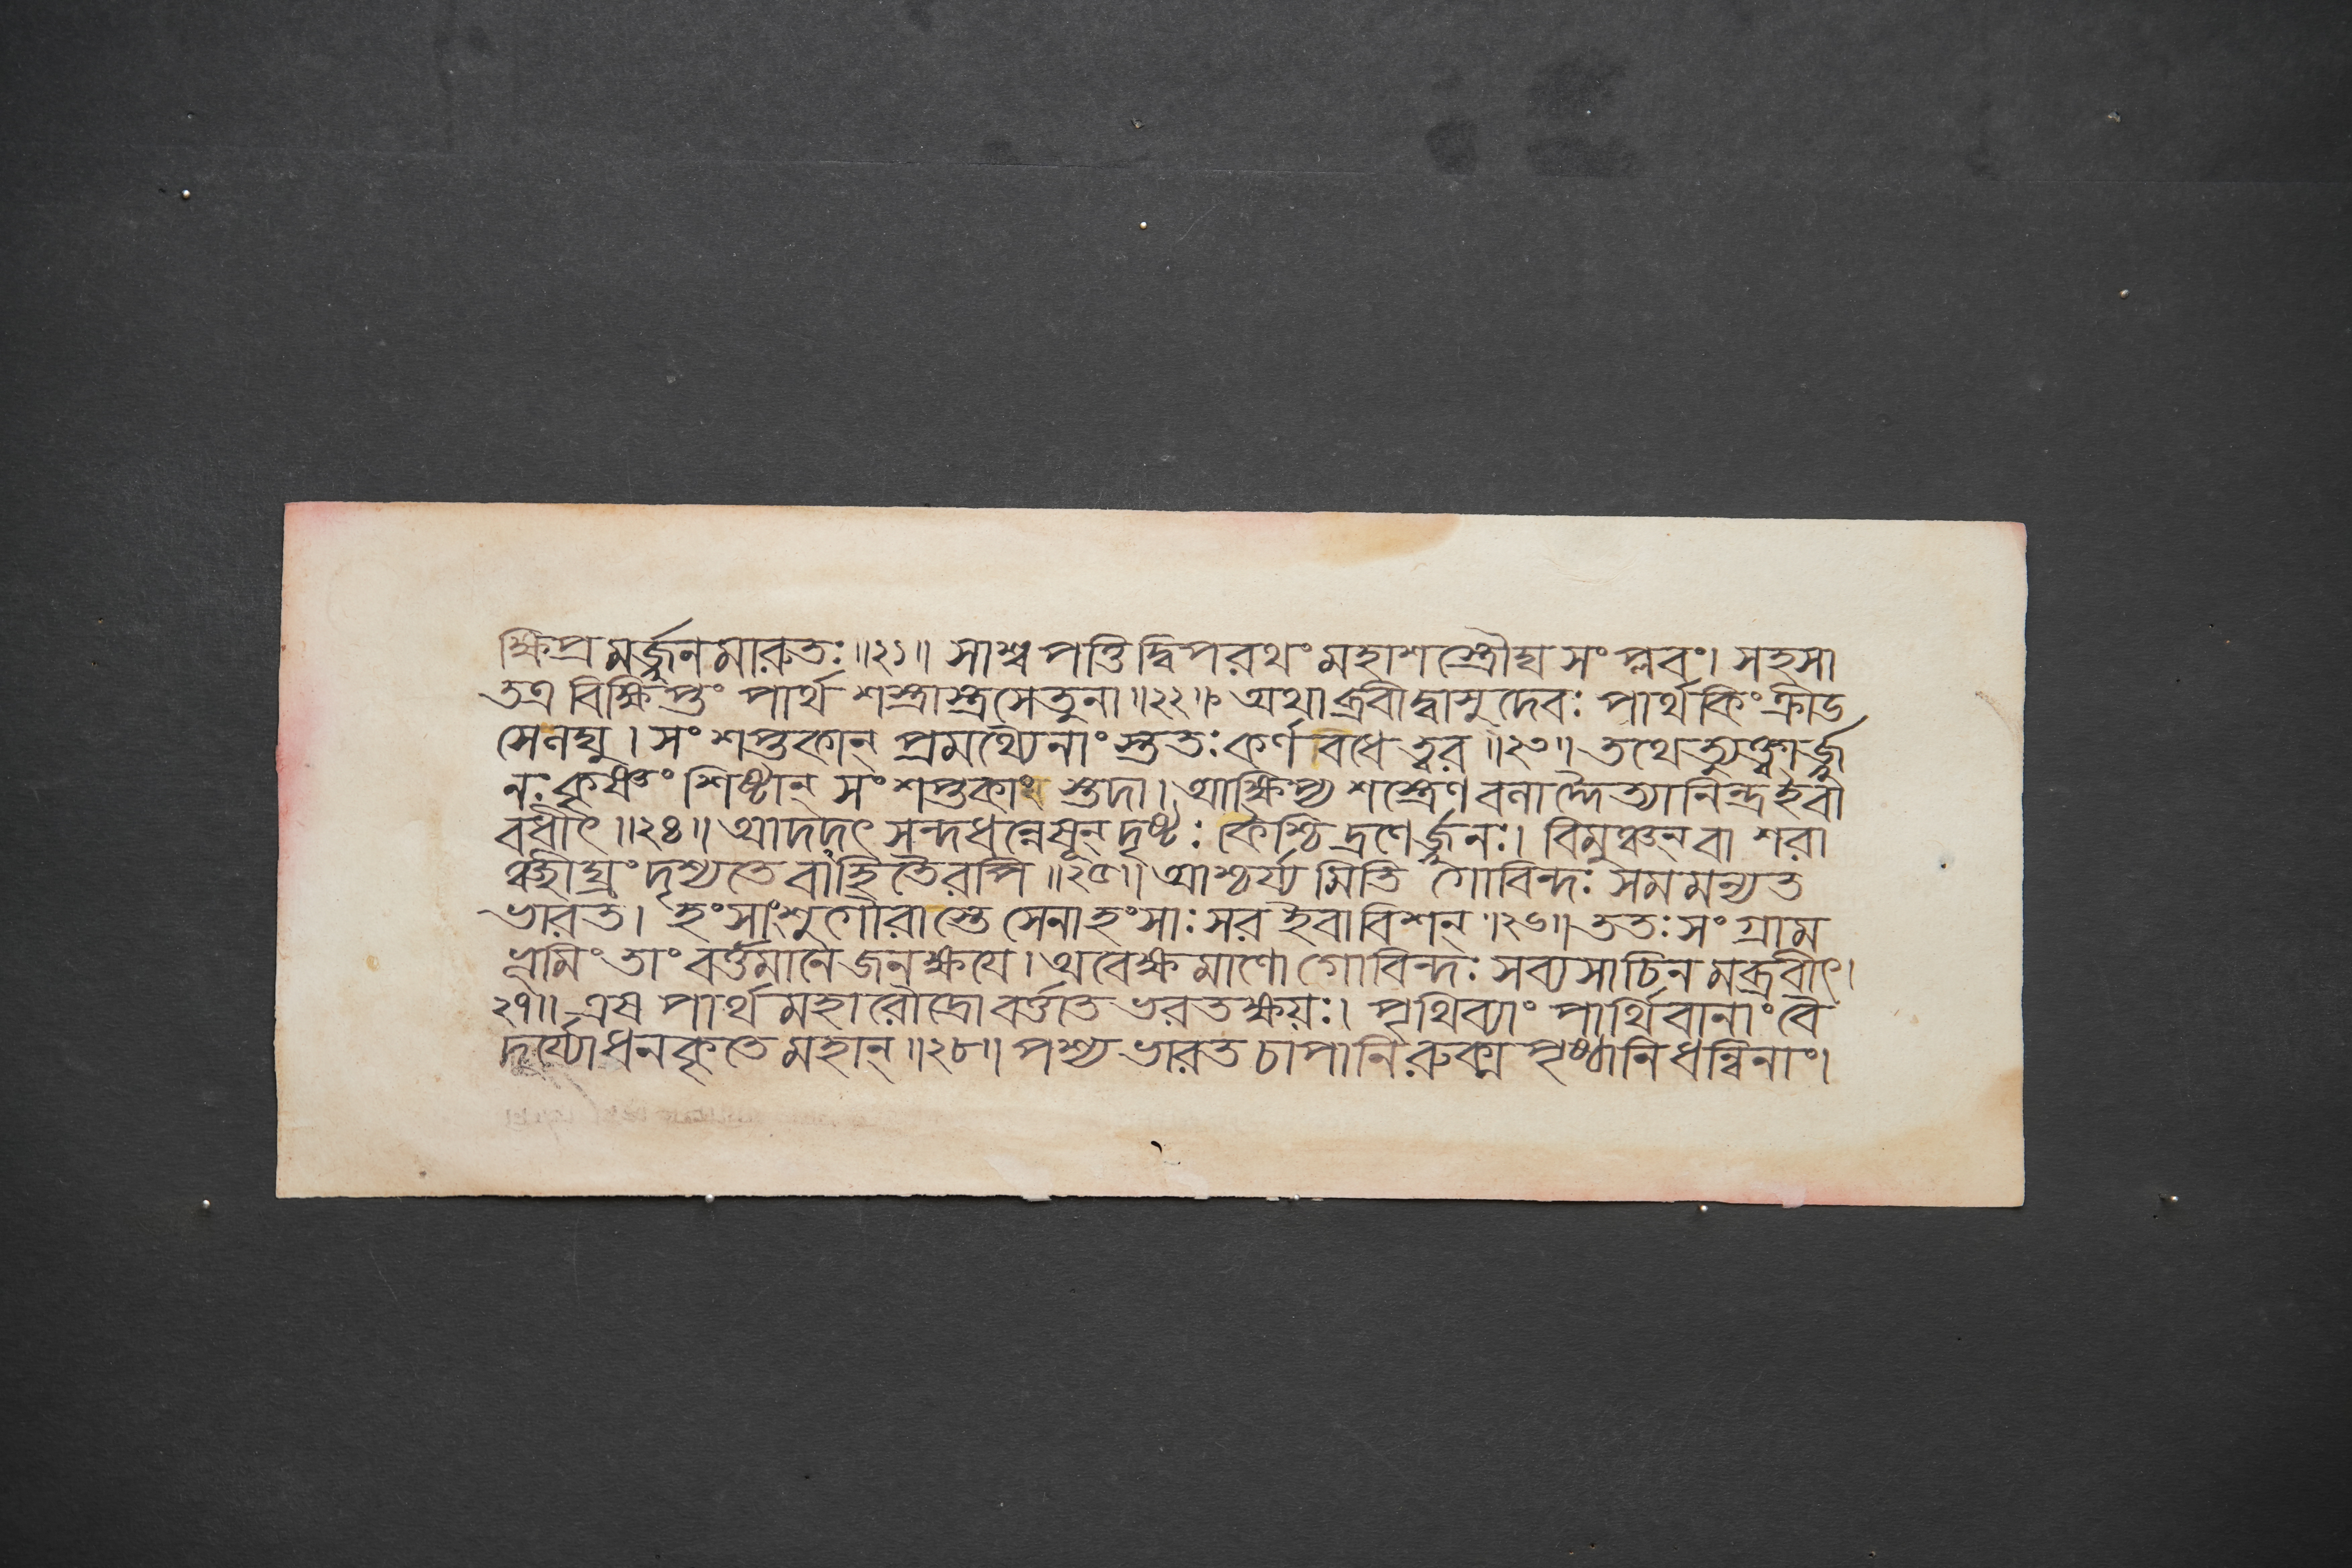 ক্ষিপ্রমর্জ্জুনমারুতঃ॥২১॥ সাশ্বপত্তিদ্বিপরথং মহাশস্ত্রৌঘসংপ্লবং। সহসা
তত্র বিক্ষিপ্তং পার্থ শস্ত্রাস্ত্রসেতুনা॥২২॥ অথাব্রবীদ্বাসুদেবঃ পার্থকিংক্রীড
সেনঘ্যু। সংশপ্তকান্ প্রমথ্যেনাং স্তুততঃ কর্ণবধে ত্বর॥২৩॥ তথেত্যুক্ত্বার্জ্জু
নঃ কৃষ্ণং শিষ্টান্ সংশপ্তকাং স্তদা। আক্ষিপ্য শস্ত্রেণ বনাদ্দৈত্যানিন্দ্রইবা
বধীৎ॥২৪॥ আদদৎ সন্দধন্নেষূন্ দৃষ্টঃ কৈশ্চিদ্রণের্জ্জুনঃ। বিমুঞ্চন্ বা শরা
ঞ্চীঘ্রং দৃশ্যতে বাহ্নিতৈরপি॥২৫॥ আশ্চর্য্যমিতি গোবিন্দঃ সমমন্যত
ভারত। হংসাংশুগৌরাস্তে সেনাহংসাঃ সরইবাবিশন্।২৬॥ ততঃ সংগ্রাম
ভূমিং তাং বর্ত্তমানে জনক্ষযে। অবেক্ষমাণো গোবিন্দঃ সব্যসাচিনমব্রবীৎ।
২৭॥ এষ পার্থ মহারৌদ্রো বর্ত্ততে ভরতক্ষয়ঃ। পৃথিব্যাং পার্থিবানাং বৈ
দুর্য্যোধনকৃতে মহান্॥২৮॥ পশ্য ভারত চাপানি রুক্মপৃষ্ঠানি ধন্বিনাং।